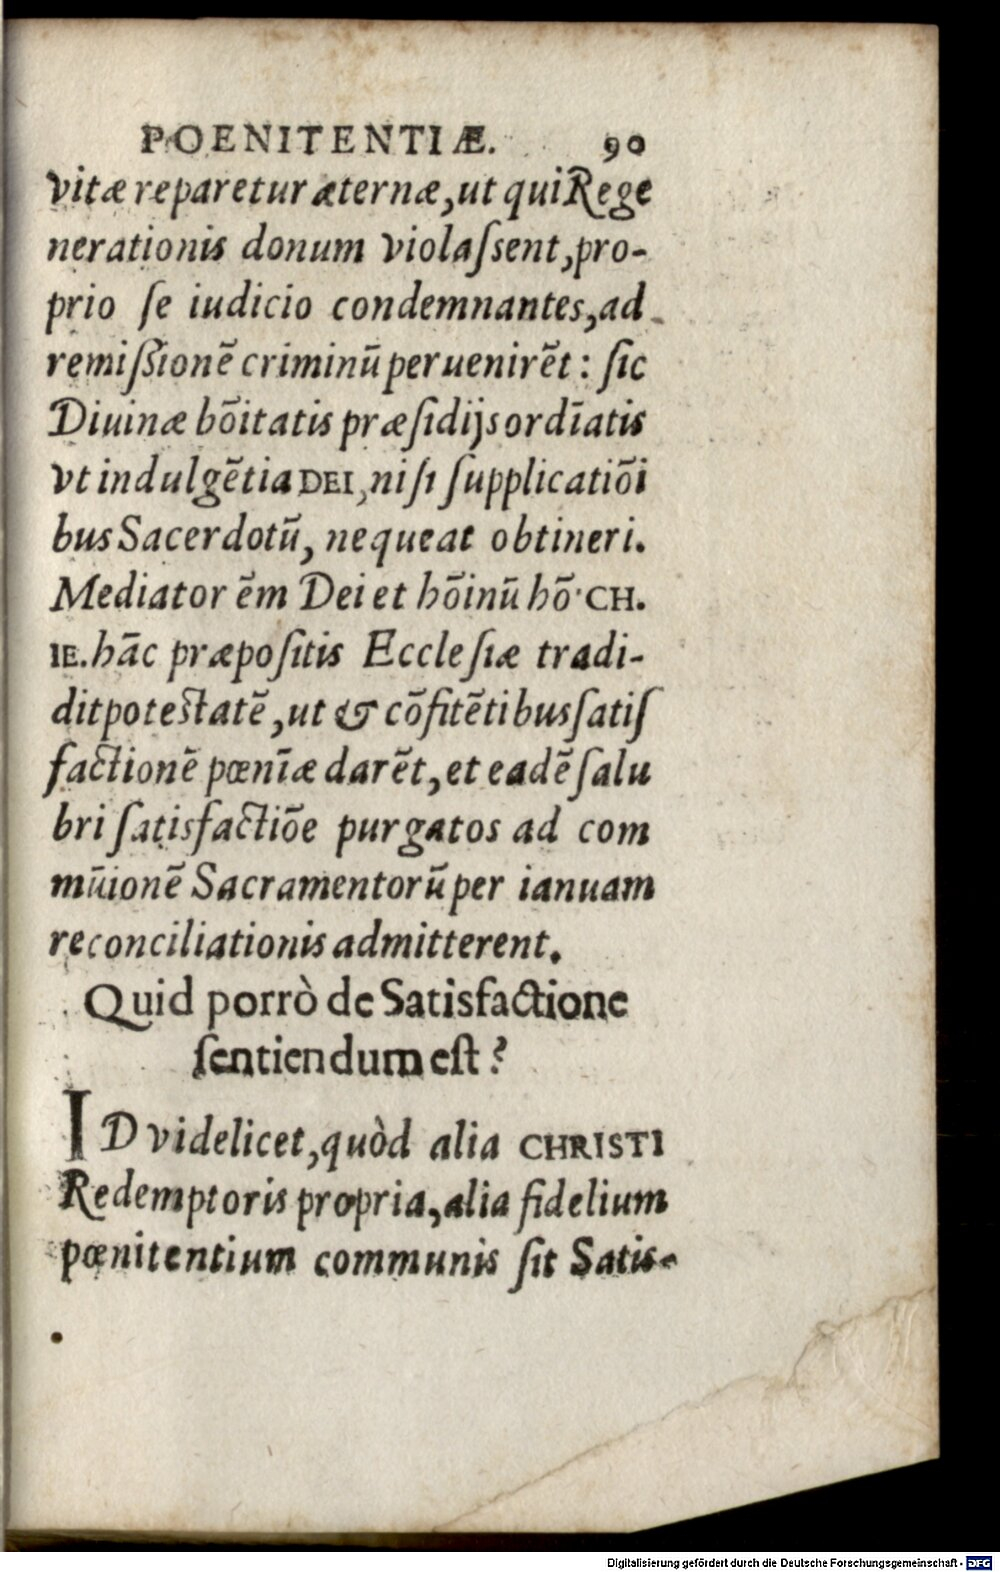 POENITENTIÆ. 90
vitæ reparetur æternæ, ut qui Rege
nerationis donum violaſsent, pro-
prio ſe iudicio condemnantes, ad
remiſsionē criminū peruenirēt : ſic
Diuinæ bōitatis præſidijs ordīatis
vt indulgētia DEI, niſi ſupplicatiōi
bus Sacerdotū, nequeat obtineri.
Mediator ēm Dei et hōinū hō CH.
IE. hāc præpoſitis Eccleſiæ tradi-
dit poteſtatē, ut & cōfitētibus ſatiſ
factionē pœnīæ darēt, et eadē ſalu
bri ſatisfactiōe purgatos ad com
mūionē Sacramentorū per ianuam
reconciliationis admitterent.
Quid porrò de Satisfactione
ſentiendum eſt ?
ID videlicet, quòd alia CHRISTI
Redemptoris propria, alia fidelium
pœnitentium communis ſit Satis-
Digitalisierung gefördert durch die Deutsche Forschungsgemeinschaft - DFG